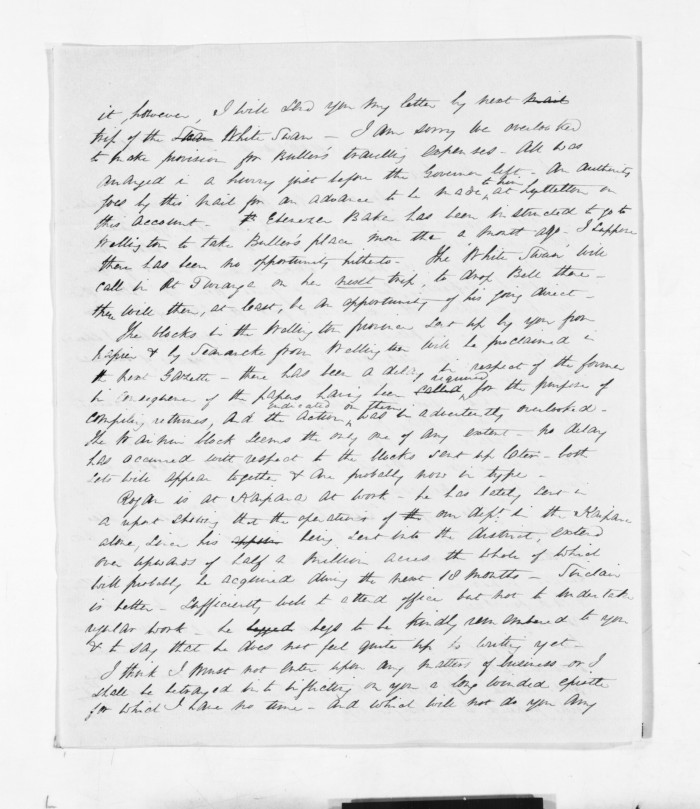 it, however, I will send you my letter by next mail
trip of the Swan White Swan - I am sorry we overlooked
to make provision for Buller's travelling expenses - All was
arranged in a hurry just before the Governor left. - An authority
goes by this mail for an advance to be made to him at Lyttelton on
this account. - Ebenezer Baker has been instructed to go to
Wellington to take Buller's place more than a month ago - I suppose
there has been no opportunity hitherto - The 'White Swan' will
call in at Turanga on her next trip, to drop Bell there -
there will then, at least, be an opportunity of his going direct -
The blocks in the Wellington province sent up by you from
Napier & by Searancke from Wellington will be proclaimed in
the next Gazette - there has been a delay in respect of the former
in consequence of the papers having been called required for the purpose of
compiling returns, and the action indicated on them was inadvertently overlooked -
The block seems the only one of any extent - no delay
has occurred with respect to the blocks sent up later - both
lots will appear together & are probably now in type -
Rogan is at Kaipara at work - he has lately sent in
a report showing that the operations of the our dept. in the Kaipara
alone, since his being sent into the district, extend
over upwards of half a million acres the whole of which
will probably be acquired during the next 18 months - Sinclair
is better - sufficiently well to attend office but not to undertake
regular work - he begged begs to be kindly remembered to you
& to say that he does not feel quite up to writing yet -
I think I must not enter upon any matters of business or I
shall be betrayed into inflicting on you a long winded epistle
for which I have no time - and which will not do you any